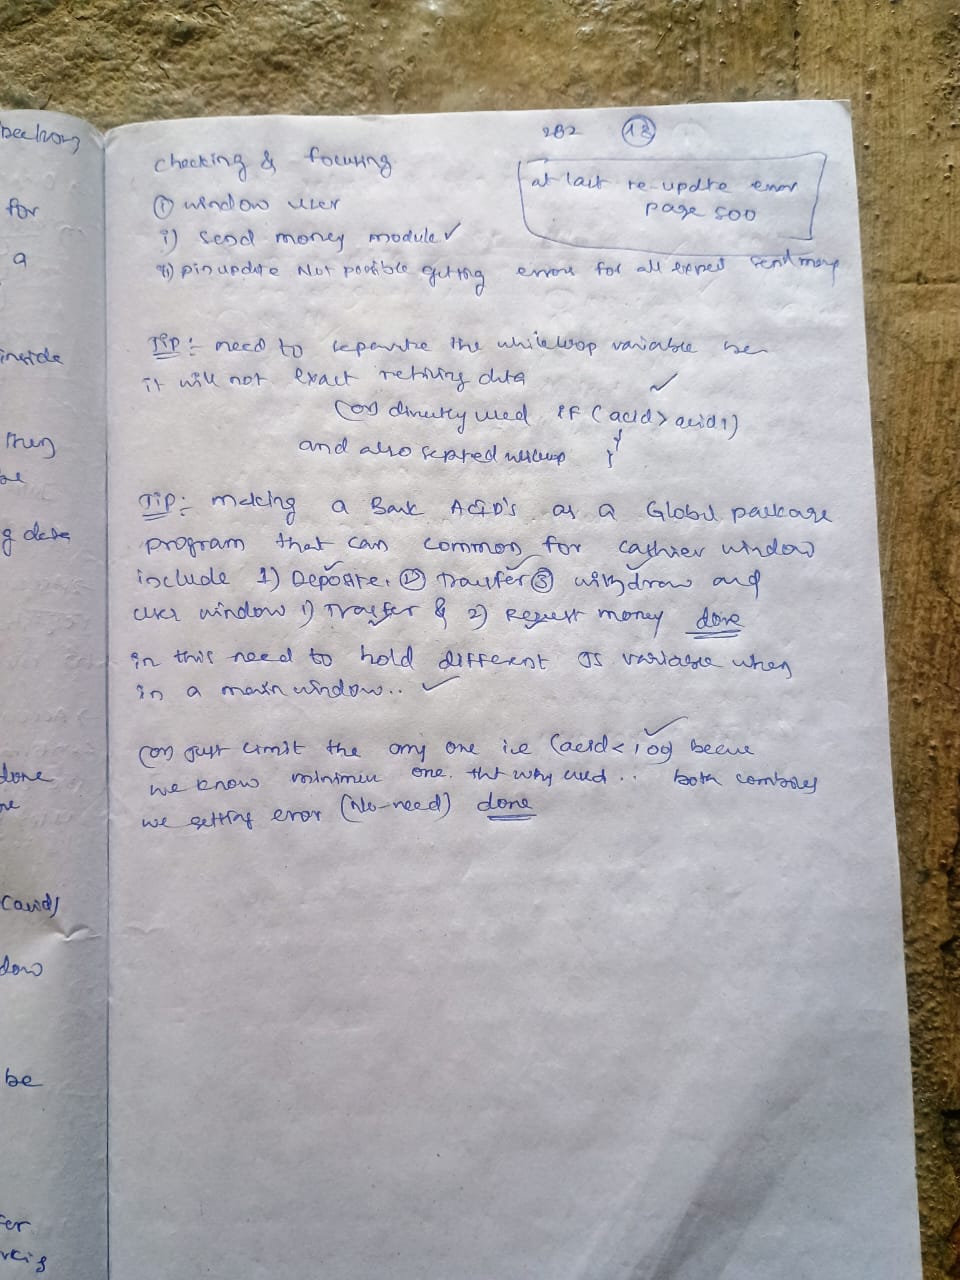 beehong
for
a
inside
they
be
g data
done
(acid)
dow
be
fer
282 (18)
checking & focusing
at last re-update error
page 500
① window user
i) send money module ✓
ii) pin update Not possible getting errors for all expect send money
Tip:- need to seperate the whileloop variable
it will not exact retriving data
(or) directly used if (acid > acid1) ✓
and also sepreted
Tip:- making a Bank ACID's as a Global package
program that can common for cashier window
include 1) Deposite. ② Transfer ③ withdraw and
user window 1) Trasfer & 2) Request money done
in this need to hold different variable when
in a main window.. ✓
(or) just limit the any one i.e (acid<100)
we know minimum one. tht why used.. both
we getting error (No-need) done